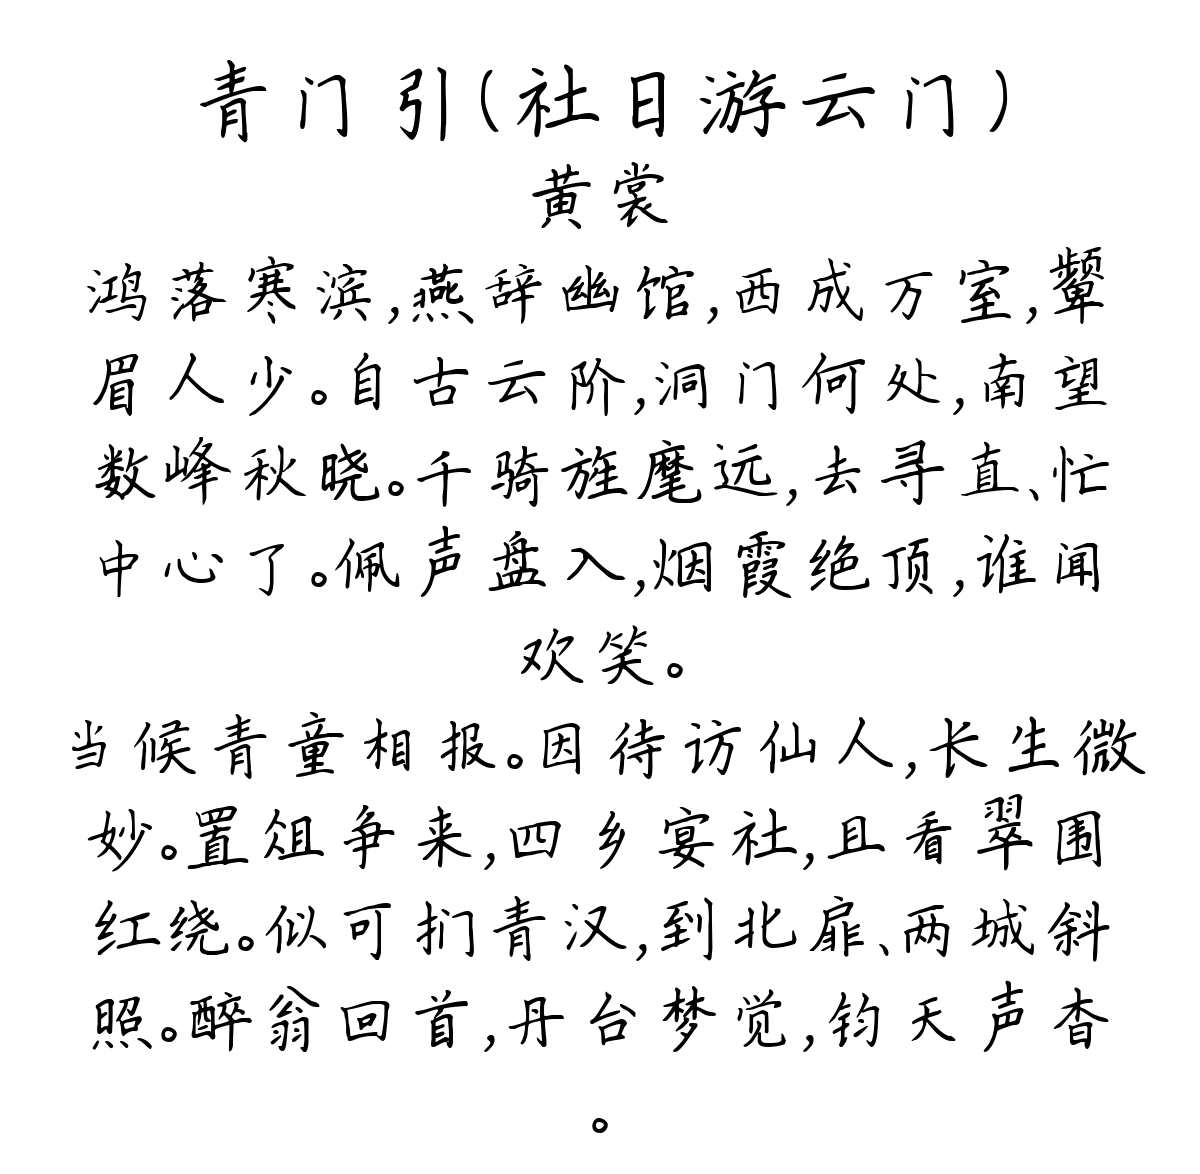 青门引(社日游云门)
黄裳
鸿落寒滨,燕辞幽馆,西成万室,颦
眉人少。自古云阶,洞门何处,南望
数峰秋晓。千骑旌麾远,去寻直、忙
中心了。佩声盘入,烟霞绝顶,谁闻
欢笑。
当候青童相报。因待访仙人,长生微
妙。置俎争来,四乡宴社,且看翠围
红绕。似可扪青汉,到北扉、两城斜
照。醉翁回首,丹台梦觉,钧天声杳
。